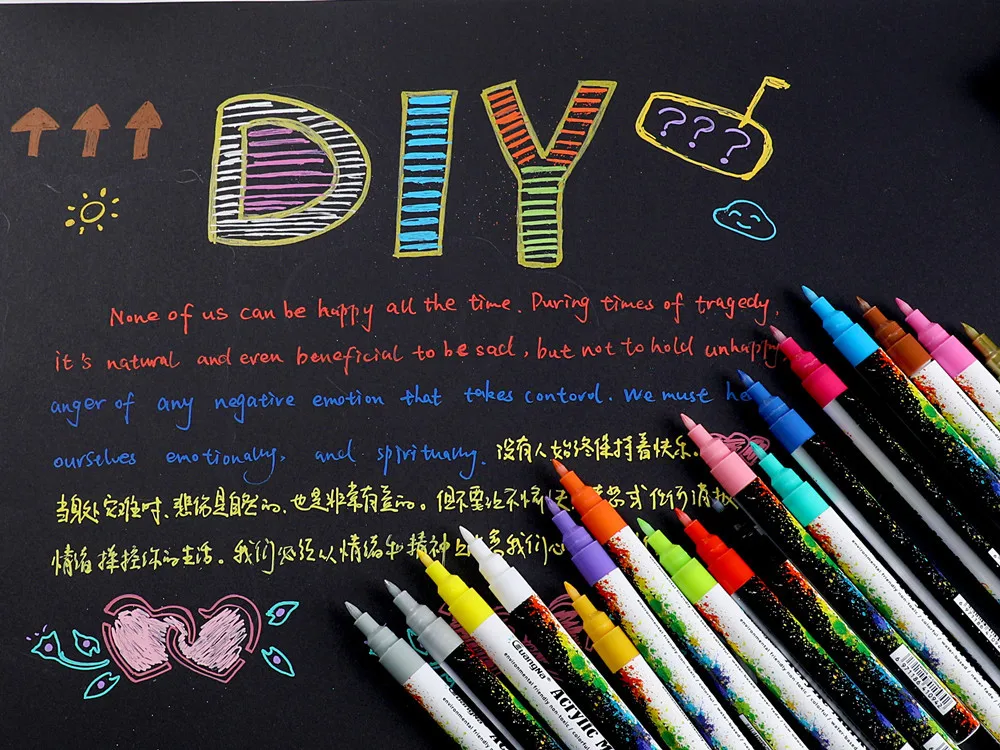 DIY
? ? ?
None of us can be happy all the time. During times of tragedy,
it's natural and even beneficial to be sad, but not to hold unhappy
anger of any negative emotion that takes contord. We must he
ourselves emotionally, and spiritually. 没有人始终保持着快乐。
当处灾难时、悲伤是自然的、也是非常有益的。但不要让不愉
情绪操控你的生活。我们必须从情绪和精神上 我们心
GuangNa
environmental friendly non-toxic / colorful
Acrylic M